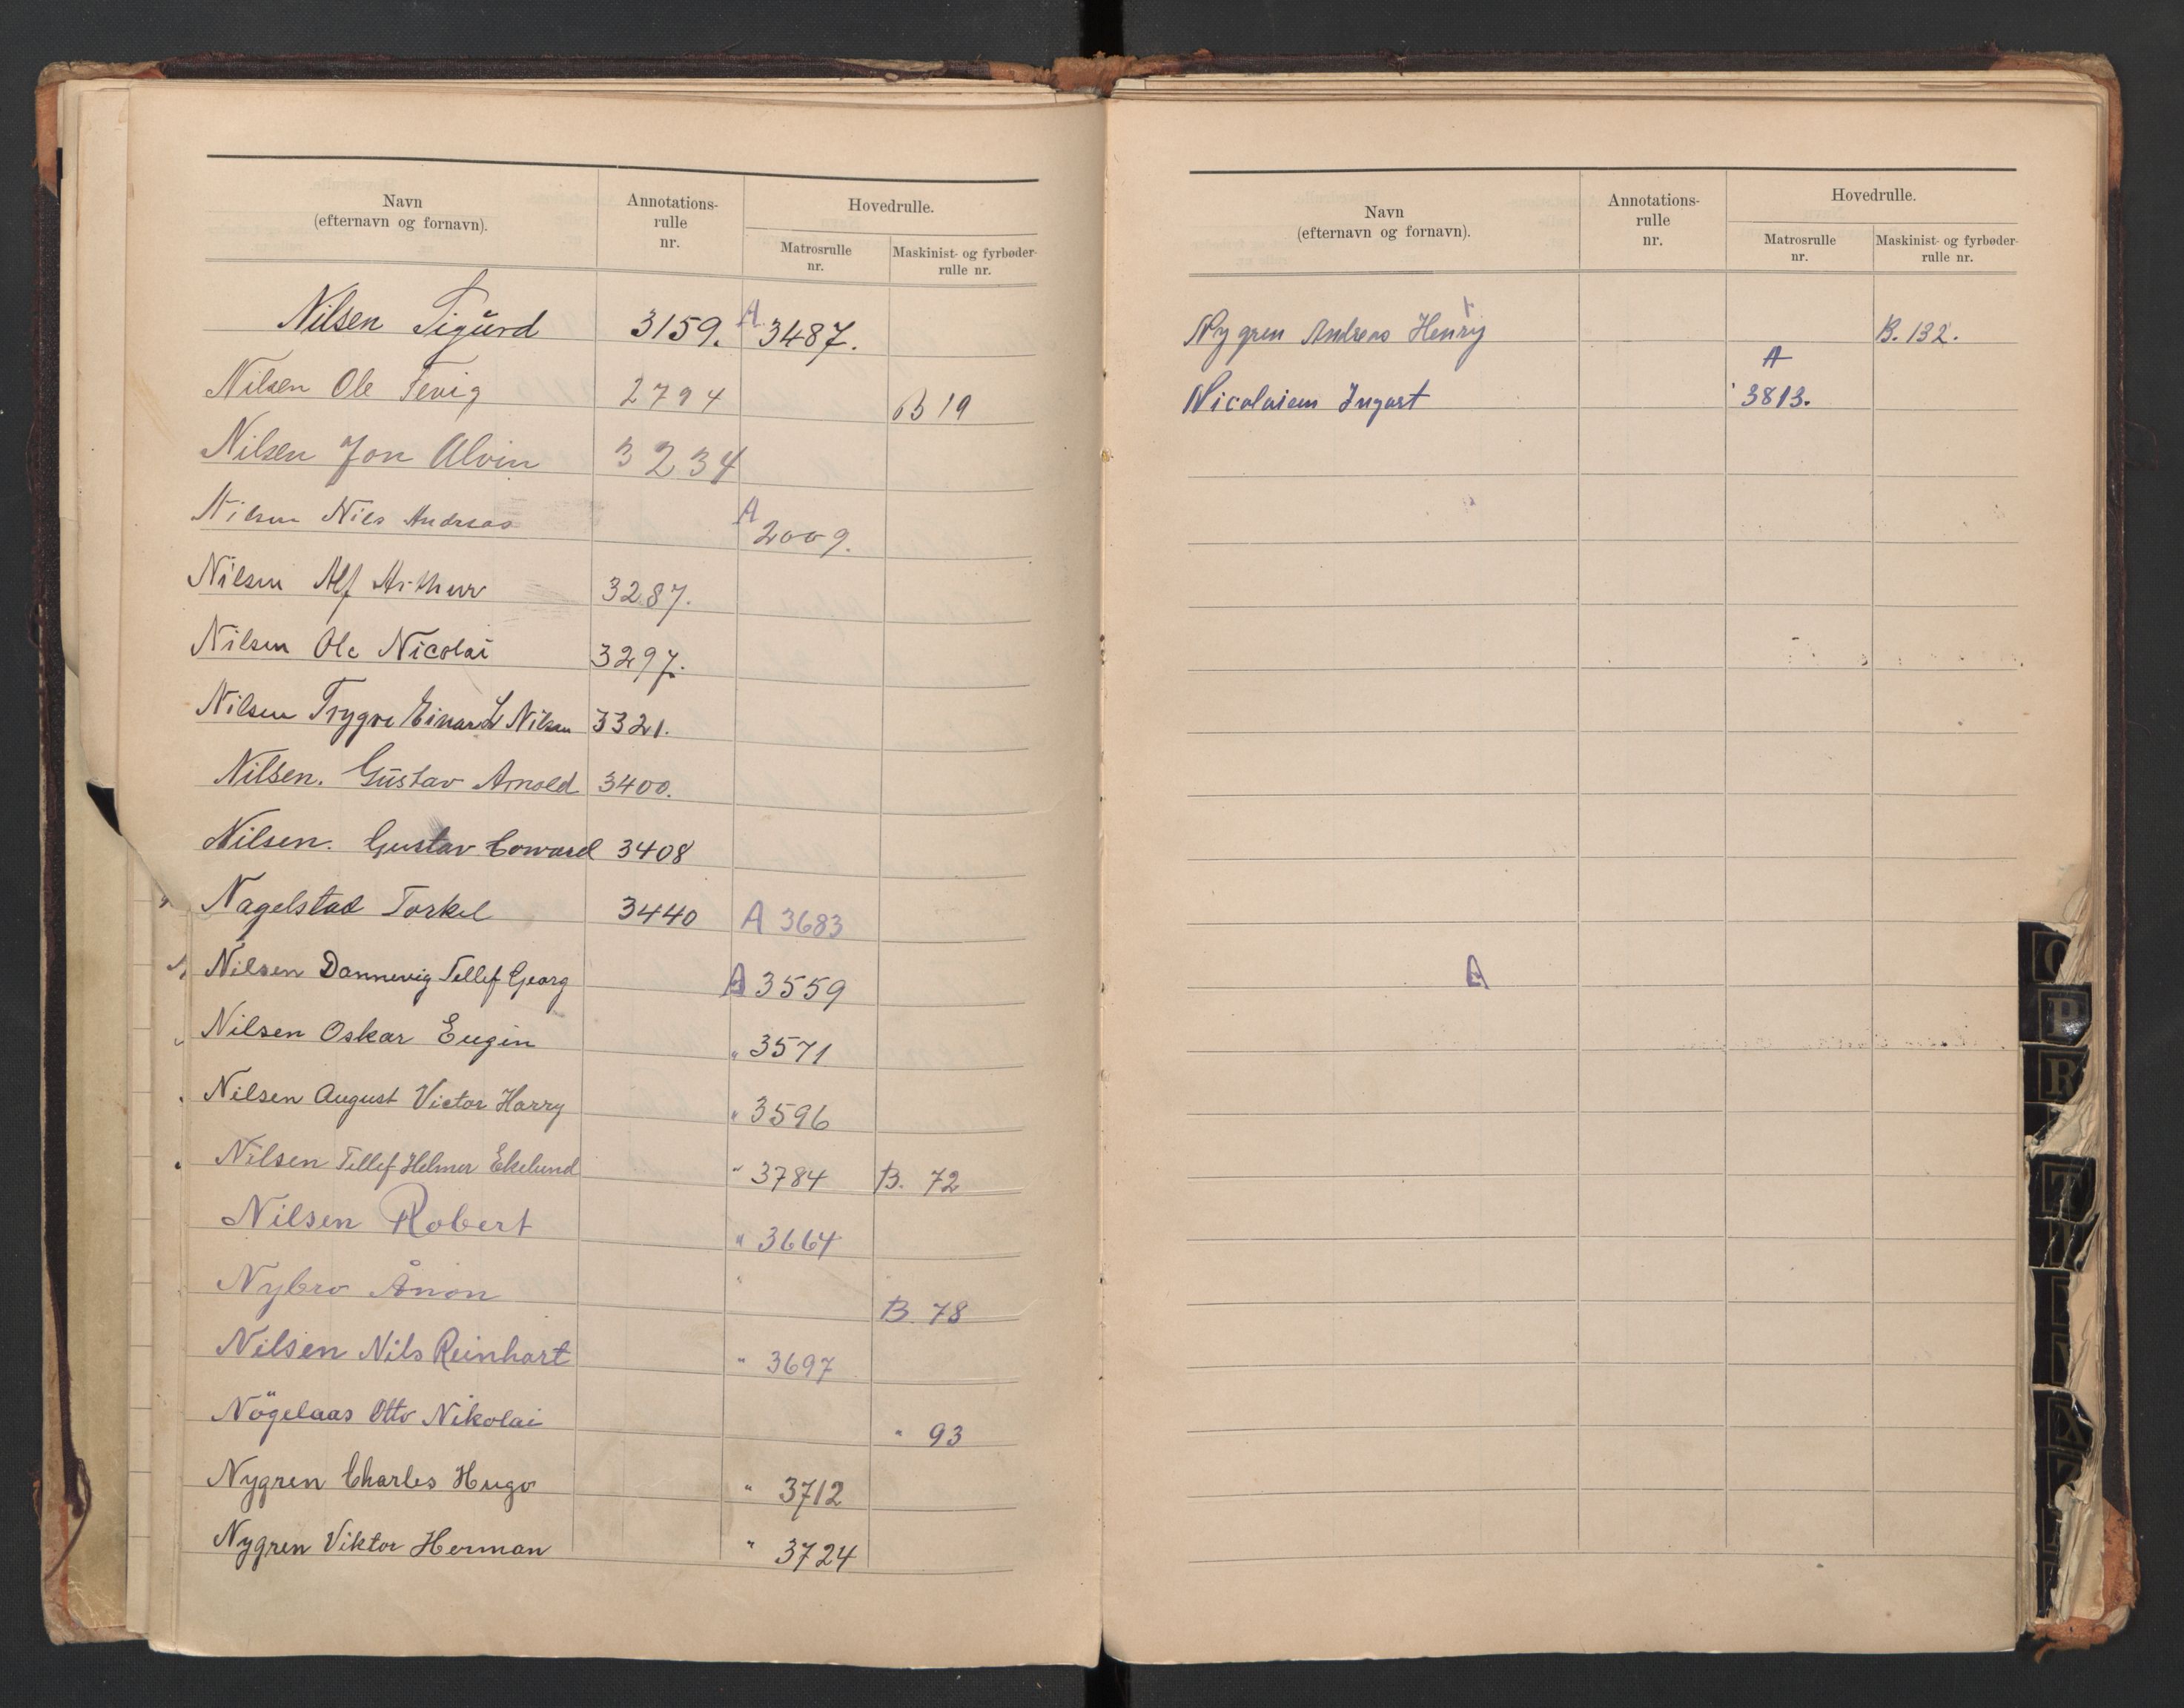 Navn (efternavn og fornavn). Annotations-rulle nr. Hovedrulle. Matrosrulle nr. Maskinist- og fyrbøder-rulle nr.
Nilsen Sigurd 3159. A 3487.
Nilsen Ole Fevig 2794 B 19
Nilsen Jon Alvin 3234
Nilsen Nils Andreas A 2009.
Nilsen Alf Arthur 3287.
Nilsen Ole Nicolai 3297.
Nilsen Trygve Einar L Nilsen 3321.
Nilsen. Gustav Arnold 3400.
Nilsen. Gustav Edward 3408
Nagelstad Torkel 3440 A 3683
Nilsen Dannevig Tellef Georg A 3559
Nilsen Oskar Eugin " 3571
Nilsen August Victor Harry " 3596
Nilsen Tellef Helmer Ekelund " 3784 B. 72
Nilsen Robert " 3664
Nybro Ånon " B. 78
Nilsen Nils Reinhart " 3697
Nögelaas Otto Nikolai " 93
Nygren Charles Hugo " 3712
Nygren Viktor Herman " 3724
Navn (efternavn og fornavn). Annotations-rulle nr. Hovedrulle. Matrosrulle nr. Maskinist- og fyrbøder-rulle nr.
Nygren Andreas Henry B. 132.
Nicolaisen Ingart A 3813.
A
P
R
T
X